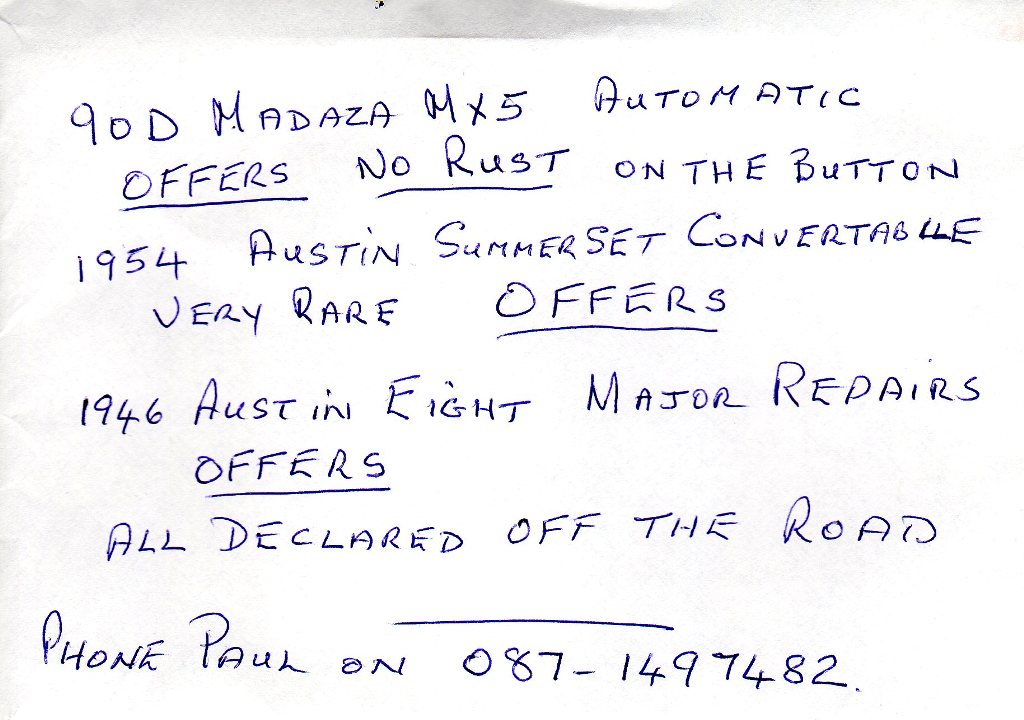 90D MADAZA MX5 AUTOMATIC
OFFERS NO RUST ON THE BUTTON
1954 AUSTIN SUMMERSET CONVERTABLE
VERY RARE OFFERS
1946 AUSTIN EIGHT MAJOR REPAIRS
OFFERS
ALL DECLARED OFF THE ROAD
PHONE PAUL ON 087-1497482.